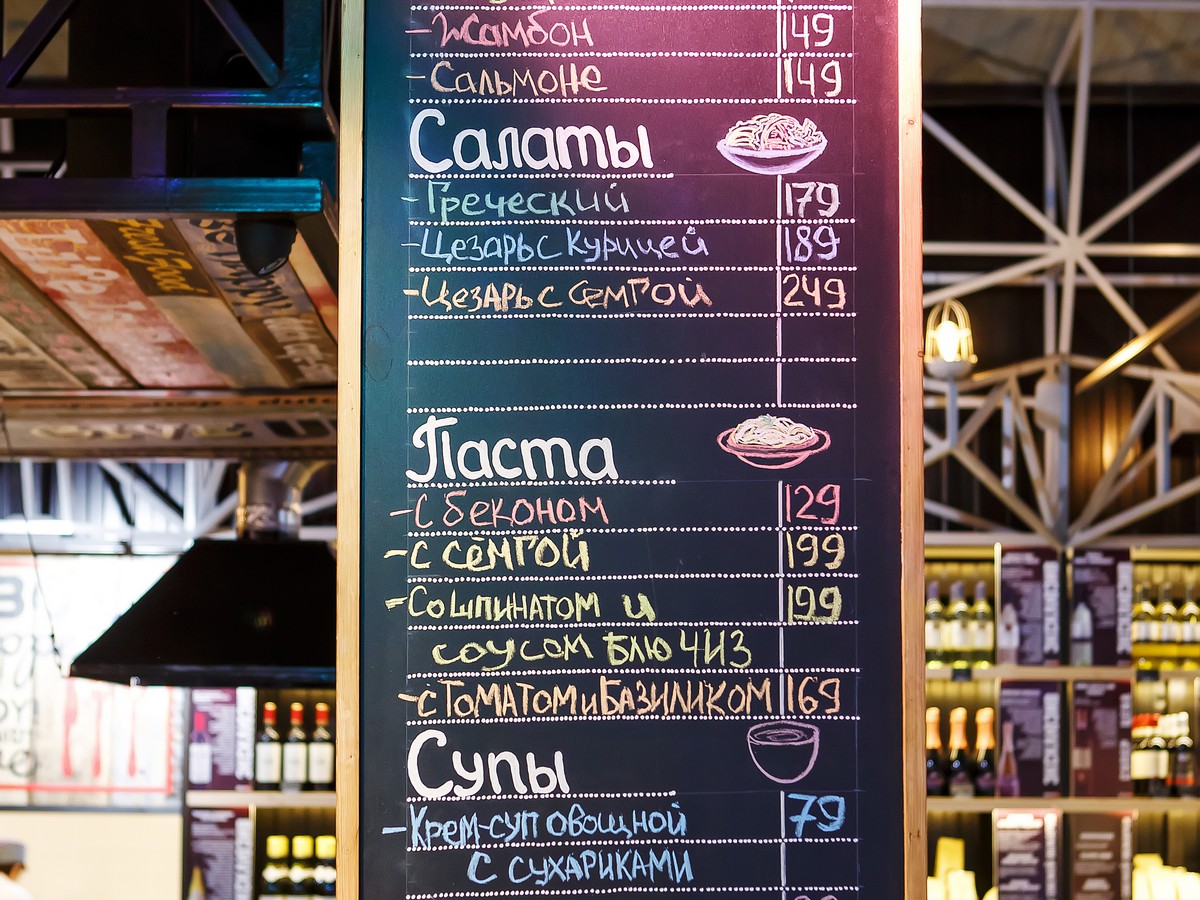 -Жамбон 149
-Сальмоне 149
Салаты
-Греческий 179
-Цезарь с курицей 189
-Цезарь с сёмгой 249
Паста
-с беконом 129
-с сёмгой 199
-Со шпинатом и 199
соусом блю чиз
-с томатом и базиликом 169
Супы
-Крем-суп овощной 79
с сухариками